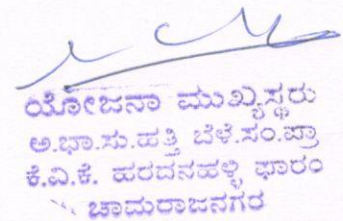 ಯೋಜನಾ ಮುಖ್ಯಸ್ಥರು
ಅ.ಭಾ.ಸು.ಹತ್ತಿ ಬೆಳೆ.ಸಂ.ಪ್ರಾ
ಕೆ.ವಿ.ಕೆ. ಹರದನಹಳ್ಳಿ ಫಾರಂ
ಚಾಮರಾಜನಗರ